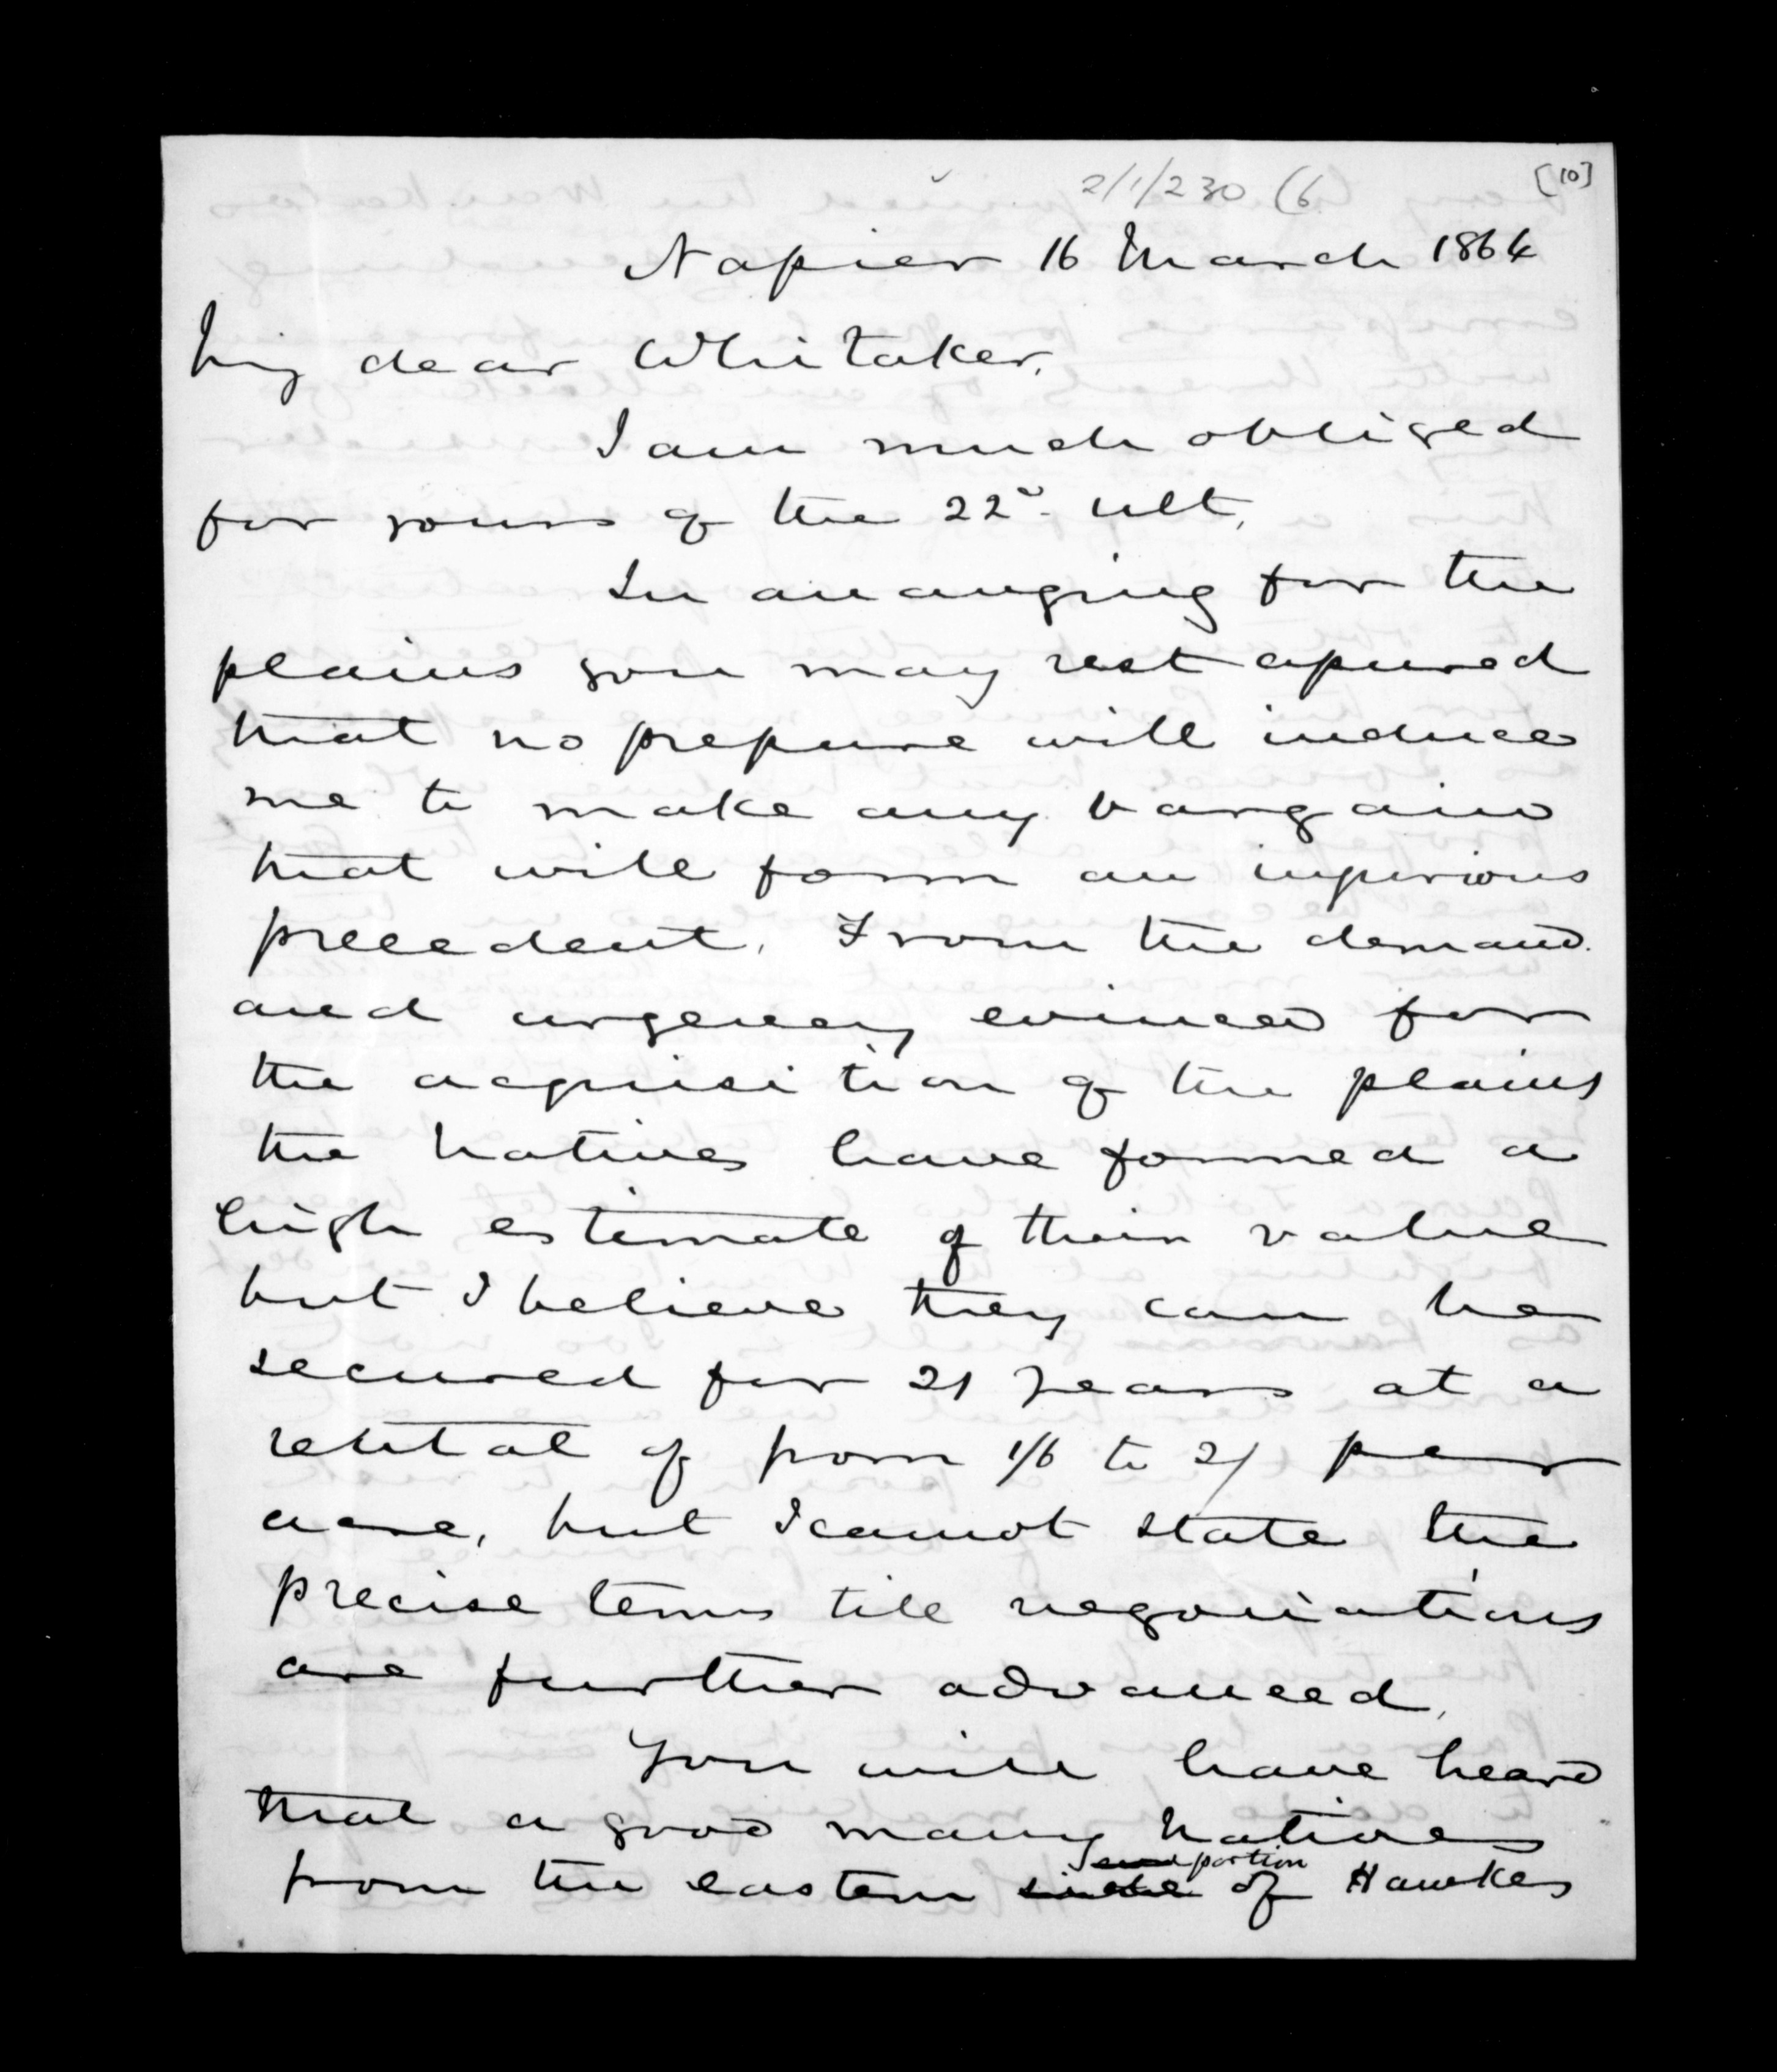 2/1/230 (6
[10]
Napier 16 March 1864
My dear Whitaker,
I am much obliged
for yours of the 22d ult,
In arranging for the
plains you may rest assured
that no pressure will induce
me to make any bargain
that will form an injurious
precedent. From the demand
and urgency evinced for
the acquisition of the plains
the Natives have formed a
high estimate of their value
but I believe they can be
secured for 21 years at a
rental of from 1/6 to 2/ per
acre, but I cannot state the
precise terms till negociations
are further advanced,
You will have heard
that a good many Natives
portion
from the eastern of Hawkes